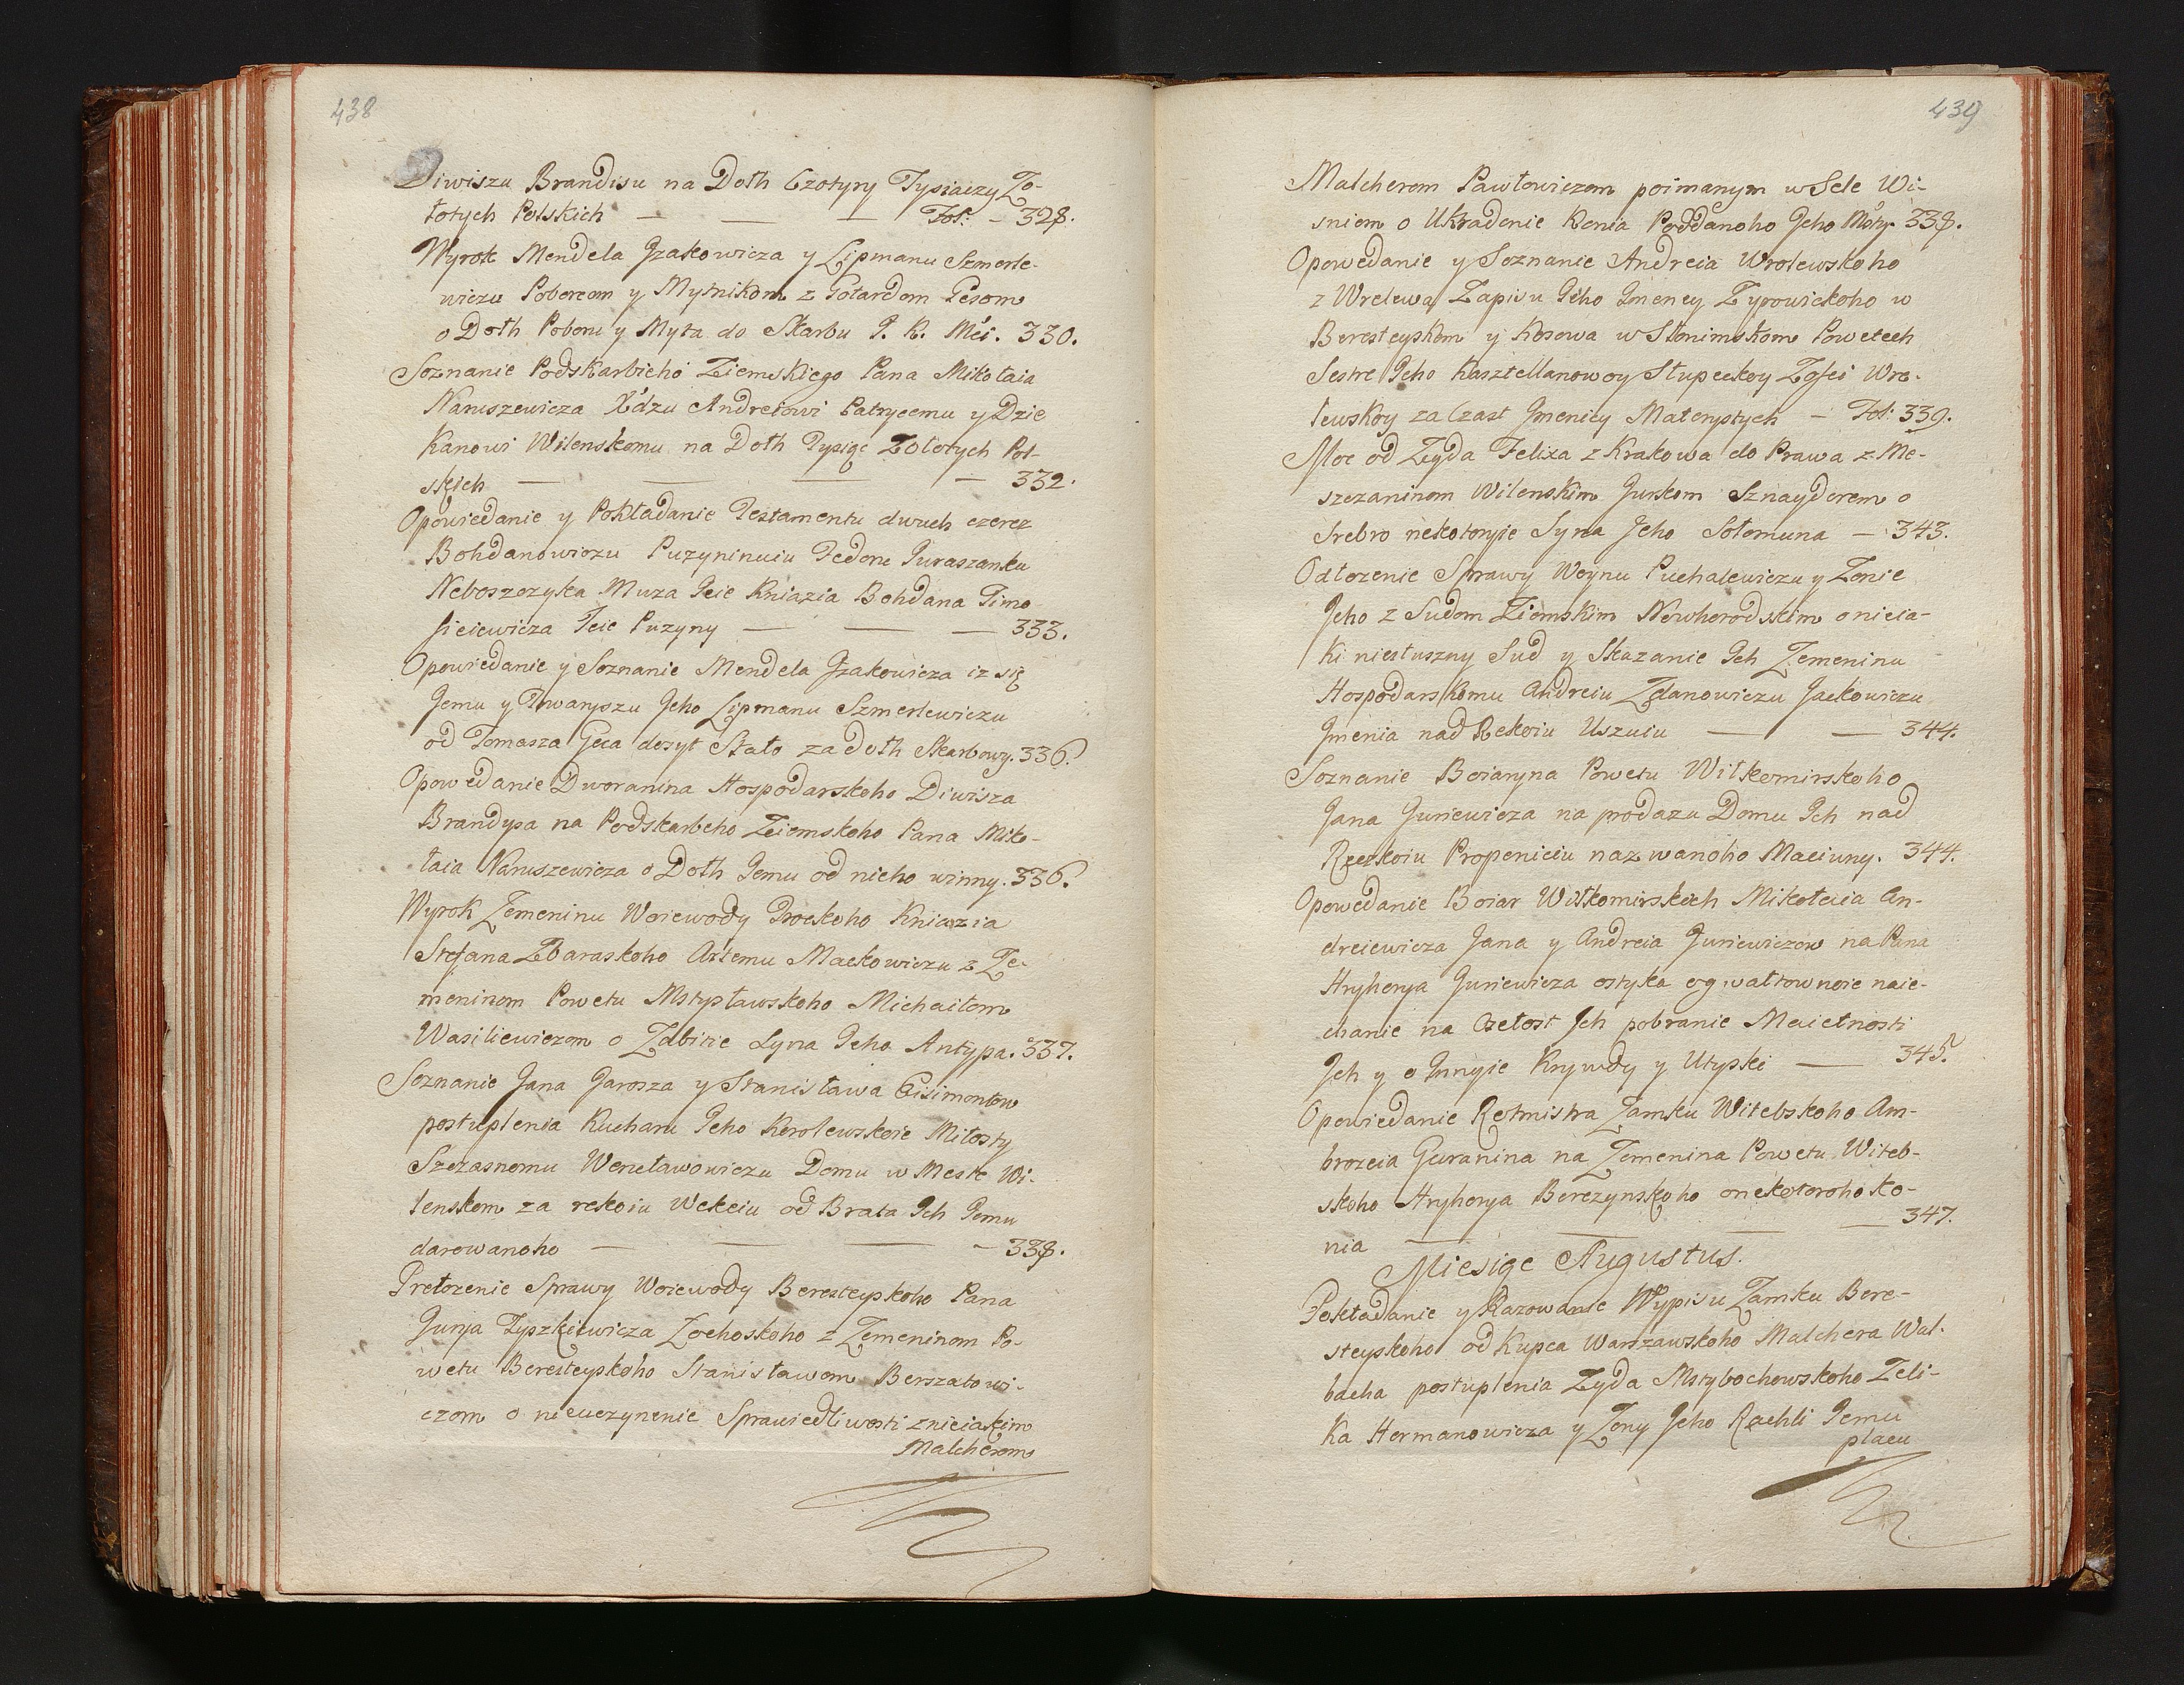 438
Diwiszu Brandisu na Dołh Czotyry Tysiaczy Zo-
łotych Polskich — — — Fol: — 328.
Wyrok Mendela Jzakowicza y Lipmanu Szmerle-
wiczu Poborcom y Mytnikom z Gotardom Gesom
o Dołh Poboru y Myta do Skarbu J. K. Mci. 330.
Soznanie Podskarbieho Ziemskiego Pana Mikołaia
Naruszewicza X'dzu Andreiowi Patrycemu y Dzie
Kanowi Wilenskomu na Dołh Tysiąc Zołotych Pol-
skich — — — — 332.
Opowiedanie y Pokładanie Testamentu dwuch czerez
Bohdanowiczu Puzyninuiu Fedoru Juraszanku
Neboszczyka Muza Jeie Kniazia Bohdana Timo
fieiewicza Jeie Puzyny — — — 333.
Opowiedanie y Soznanie Mendela Jzakowicza iz się
Jemu y Towaryszu Jeho Lipmanu Szmerlewiczu
od Tomasza Geca dosyt Stało za dołh Skarbowy. 336.
Opowedanie Dworanina Hospodarskoho Diwisza
Brandysa na Podskarbeho Ziemskoho Pana Miko-
łaia Naruszewicza o Dołh Jemu od nieho winny. 336.
Wyrok Zemeninu Woiewody Trockoho Kniazia
Stefana Zbaraskoho Artemu Mackowiczu z Ze-
meninom Powetu Mstysławskoho Michaiłom
Wasiliewiczom o Zabitie Syna Jeho Antypa. 337.
Soznanie Jana Jarosza y Stanisława Eisimontow
postuplenia Kucharu Jeho Korolewskoie Miłosty
Szczasnomu Wencławowiczu Domu w Meste Wi-
lenskom za rekoiu Wekeiu od Brata Jch Jemu
darowanoho — — — — 338.
Prełozenie Sprawy Woiewody Beresteyskoho Pana
Jurja Tyszkiewicza Łochoskoho z Zemeninom Po-
wetu Beresteyskoho Stanisławom Berszatowi-
czom o neuczynenie Sprawiedliwosti z nieiakim
Malcherom
439
Malcherom Pawłowiczom poimanym w Sele Wi-
sniom o Ukradenie Konia Poddanoho Jeho Mo'ty 338.
Opowedanie y Soznanie Andreia Wrolewskoho
z Wrelewa Zapisu Jeho Jmeney Zyrowickoho w
Beresteyskom y Kosowa w Słonimskom Powetech
Sestre Jeho Kasztellanowoy Słupeckoy Zofei Wro-
lewskoy za Czast Jmeniey Materystych — Fol: 339.
Moc od Zyda Felixa z Krakowa do Prawa z Me-
szczaninom Wilenskim Jurkom Sznayderem o
Srebro nekotoryie Syna Jeho Sołomuna — 343.
Odłozenie Sprawy Woynu Puchalewiczu y Zonie
Jeho z Sudom Ziemskim Nowhorodskim o nieia-
ki niesłuszny Sud y Skazanie Jch Zemeninu
Hospodarskomu Andreiu Zdanowiczu Jackowiczu
Jmenia nad Rekoiu Uszuiu — — 344.
Soznanie Boiaryna Powetu Wiłkomirskoho
Jana Juriewicza na prodazu Domu Jch nad
Reczkoiu Propeniciu nazwanoho Maciuny. 344.
Opowedanie Boiar Wiłkomirskich Mikołaia An-
dreiewicza Jana y Andreia Juriewiczow na Pana
Hryhorya Juriewicza ostyka o gwałtownoie naie-
chanie na Czełost Jch pobranie Maietnosti
Jch y o Jnnyie Krywdy y Utyski — 345.
Opowiedanie Rotmistra Zamku Witebskoho Am-
brozeia Guranina na Zemenina Powetu Witeb-
skoho Hryhorya Berezynskoho o nekotoroho ko-
nia — — — — 347.
Miesiąc Augustus.
Pokładanie y Kazowanie Wypisu Zamku Bere-
steyskoho od Kupca Warszawskoho Malchera Wal-
bacha postuplenia Zyda Mstybochowskoho Zeli-
ka Hermanowicza y Zony Jeho Rachli Jemu
placu